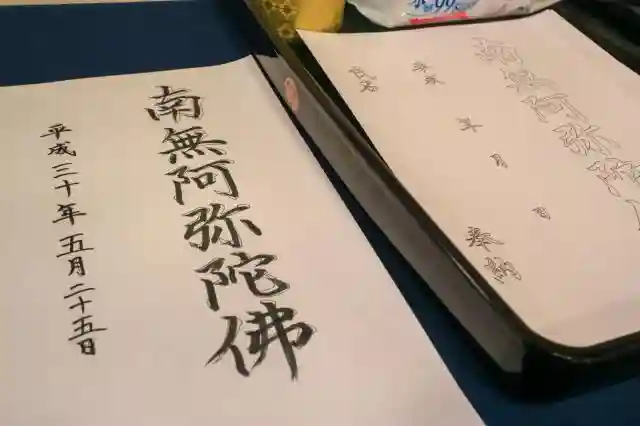 南無阿弥陀佛
平成三十年五月二十五日
南無阿弥陀
年 月 日 奉納
住所
氏名
99